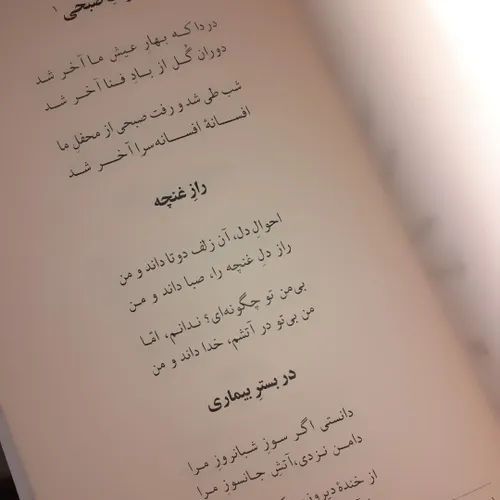 صبحی ۱
دردا که بهار عیش ما آخر شد
دوران گُل از بادِ فنا آخر شد
شب طی شد و رفت صبحی از محفلِ ما
افسانهٔ افسانه‌سرا آخر شد
رازِ غنچه
احوالِ دل، آن زلفِ دوتا داند و من
رازِ دلِ غنچه را، صبا داند و من
بی‌من تو چگونه‌ای؟ ندانم، امّا
من بی‌تو در آتشم، خدا داند و من
در بسترِ بیماری
دانستی اگر سوزِ شبانروزِ مرا
دامن نزدی، آتشِ جانسوزِ مرا
از خندهٔ